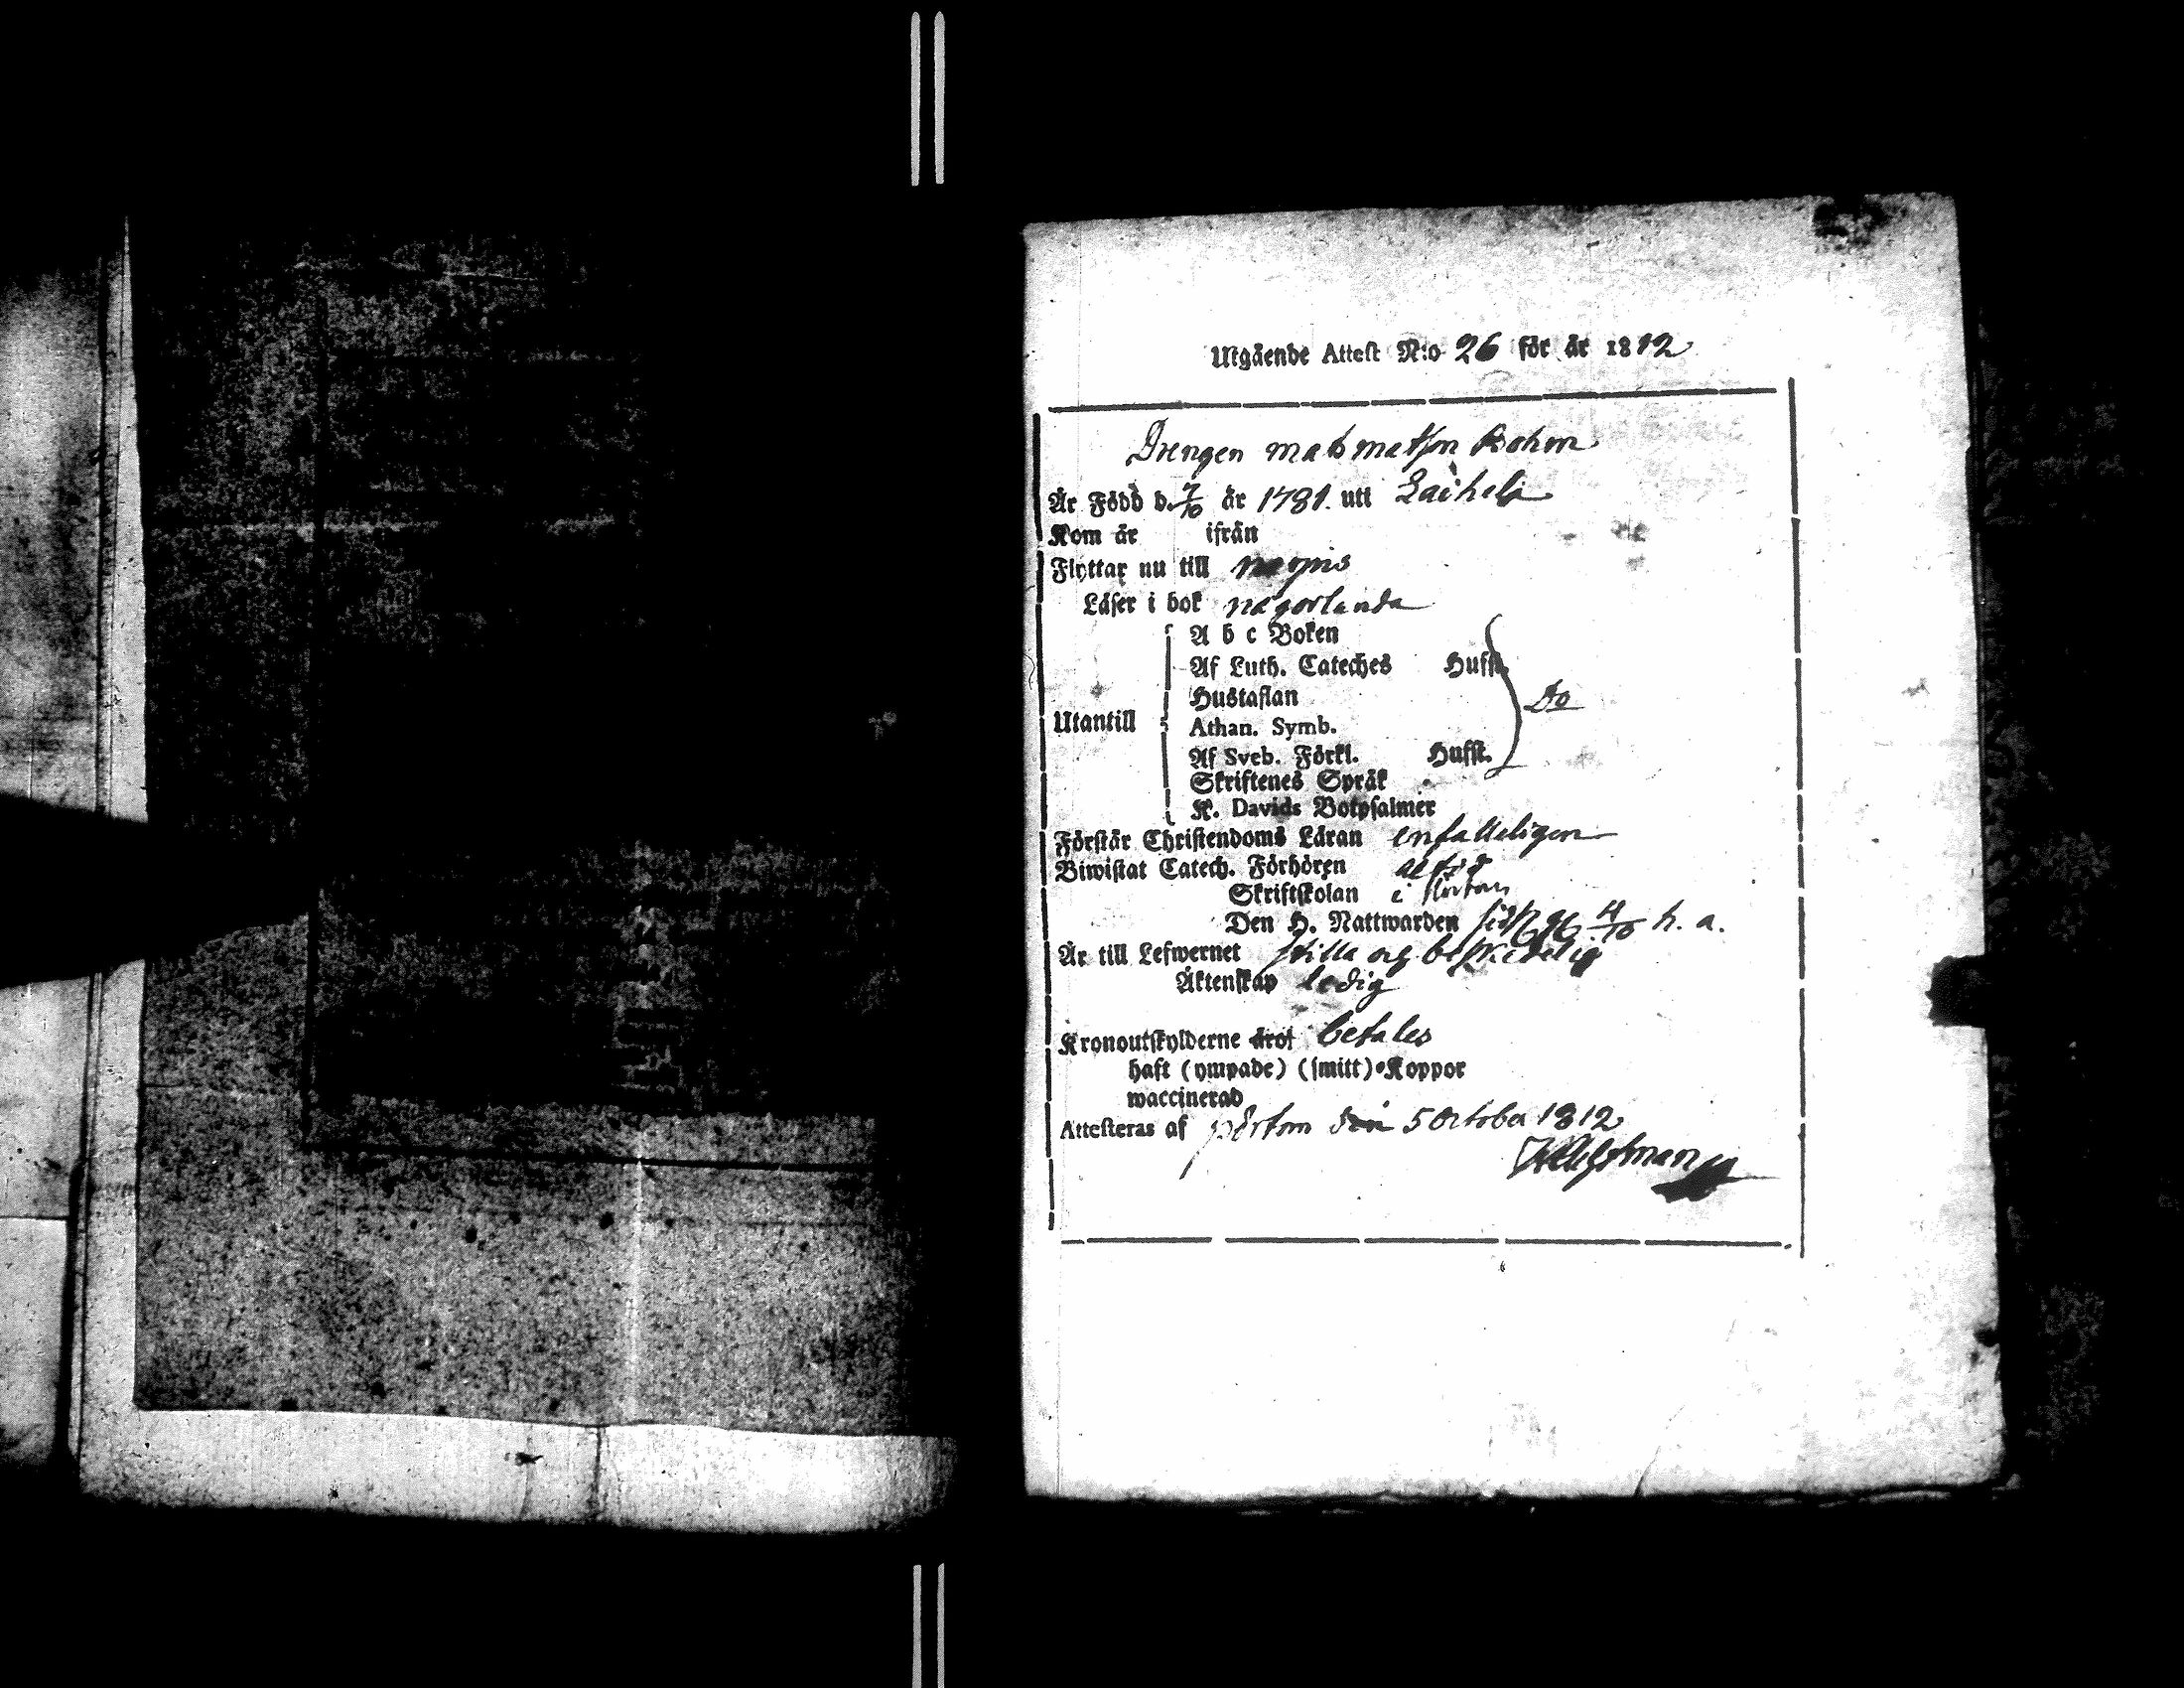 Utgående Attest N:o 26 för år 1812
Drengen mats matsson Bohm
Är Född d. 7/10 år 1781. uti Laihela
Kom år ifrån
Flyttar nu till
Läser i bok någorlunda
A b c Boken
Af Luth. Cateches Hufst.
Hustaflan
Utantill Athan. Symb. Do
Af Sveb. Förkl. Hufst.
Skriftenes Språk
K. Davids Botpsalmer
Förstår Christendoms Läran enfalleligen
Biwistat Catech. Förhören altid
Skriftskolan i
Den H. Nattwarden h. a.
Är till Lefwernet stilla og beskedelig
Äktenskap ledig
Kronoutskylderne äro betales
haft (ympade) (smitt) Koppor
waccinerad
Attesteras af pörtom den 5 October 1812